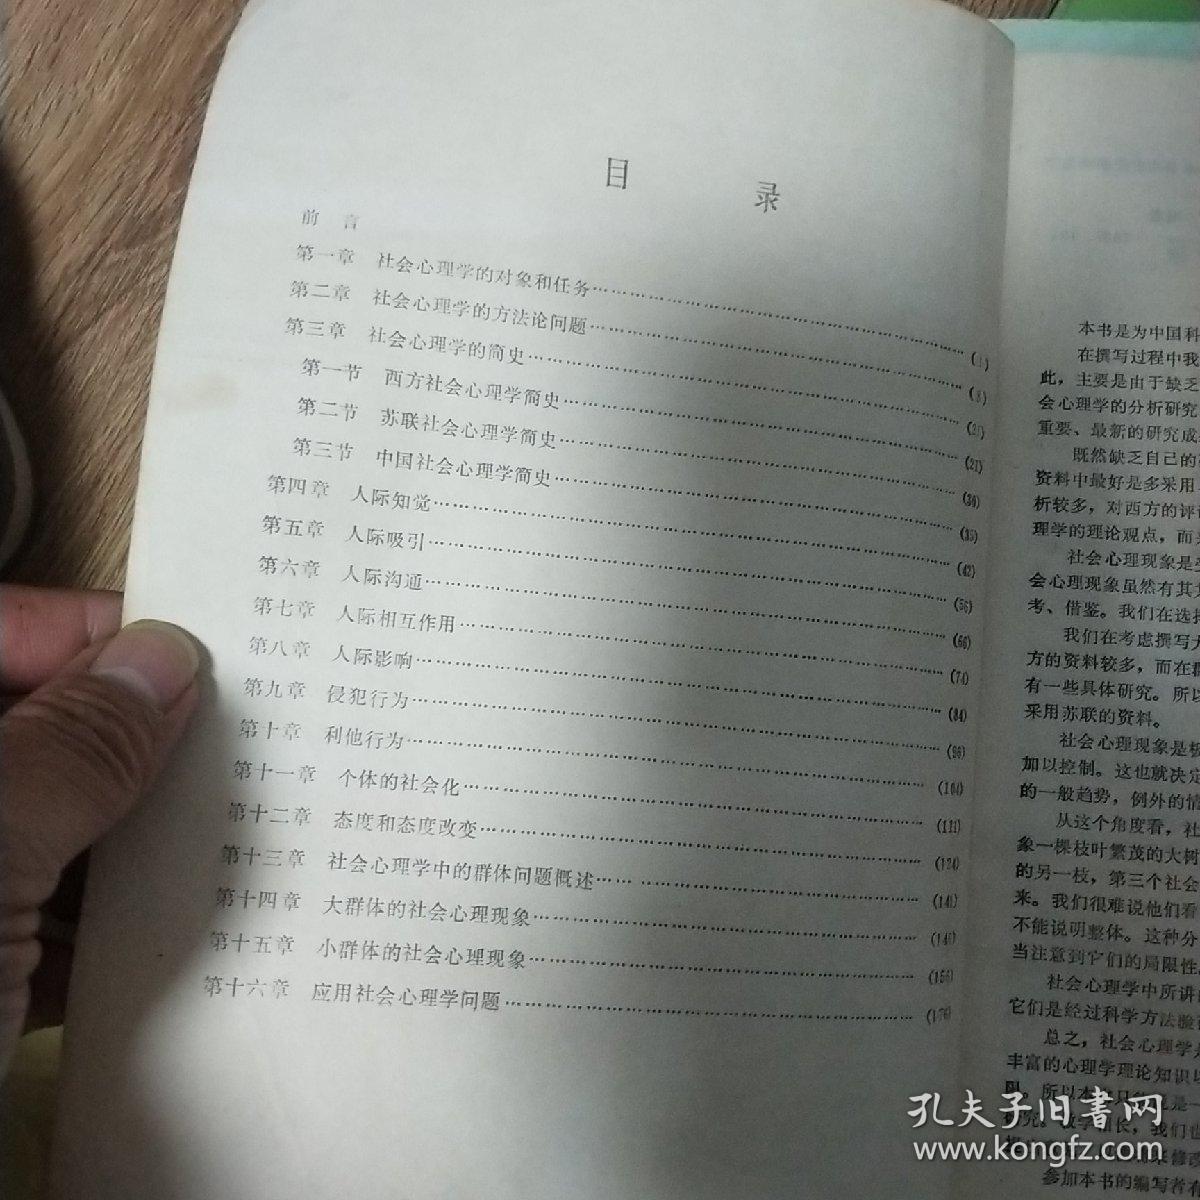 目 录
前 言
第一章 社会心理学的对象和任务……(1)
第二章 社会心理学的方法论问题……(8)
第三章 社会心理学的简史……(21)
第一节 西方社会心理学简史……(21)
第二节 苏联社会心理学简史……(30)
第三节 中国社会心理学简史……(35)
第四章 人际知觉……(42)
第五章 人际吸引……(56)
第六章 人际沟通……(66)
第七章 人际相互作用……(74)
第八章 人际影响……(84)
第九章 侵犯行为……(96)
第十章 利他行为……(104)
第十一章 个体的社会化……(111)
第十二章 态度和态度改变……(124)
第十三章 社会心理学中的群体问题概述……(141)
第十四章 大群体的社会心理现象……
第十五章 小群体的社会心理现象……(156)
第十六章 应用社会心理学问题……(176)
本书是为中国科
在撰写过程中我
此，主要是由于缺乏
会心理学的分析研究
重要、最新的研究成
既然缺乏自己的
资料中最好是多采用
析较多，对西方的评
理学的理论观点，而
社会心理现象是
会心理现象虽然有其
考、借鉴。我们在选择
我们在考虑撰写
方的资料较多，而在
有一些具体研究。所以
采用苏联的资料。
社会心理现象是
加以控制。这也就决定
的一般趋势，例外的情
从这个角度看，社
象一棵枝叶繁茂的大树
的另一枝，第三个社会
来。我们很难说他们看
不能说明整体。这种分
当注意到它们的局限性
社会心理学中所讲
它们是经过科学方法验
总之，社会心理学
丰富的心理学理论知识
限。所以本
究。教学相长，我们也
来修改
参加本书的编写者有
孔夫子旧书网
www.kongfz.com